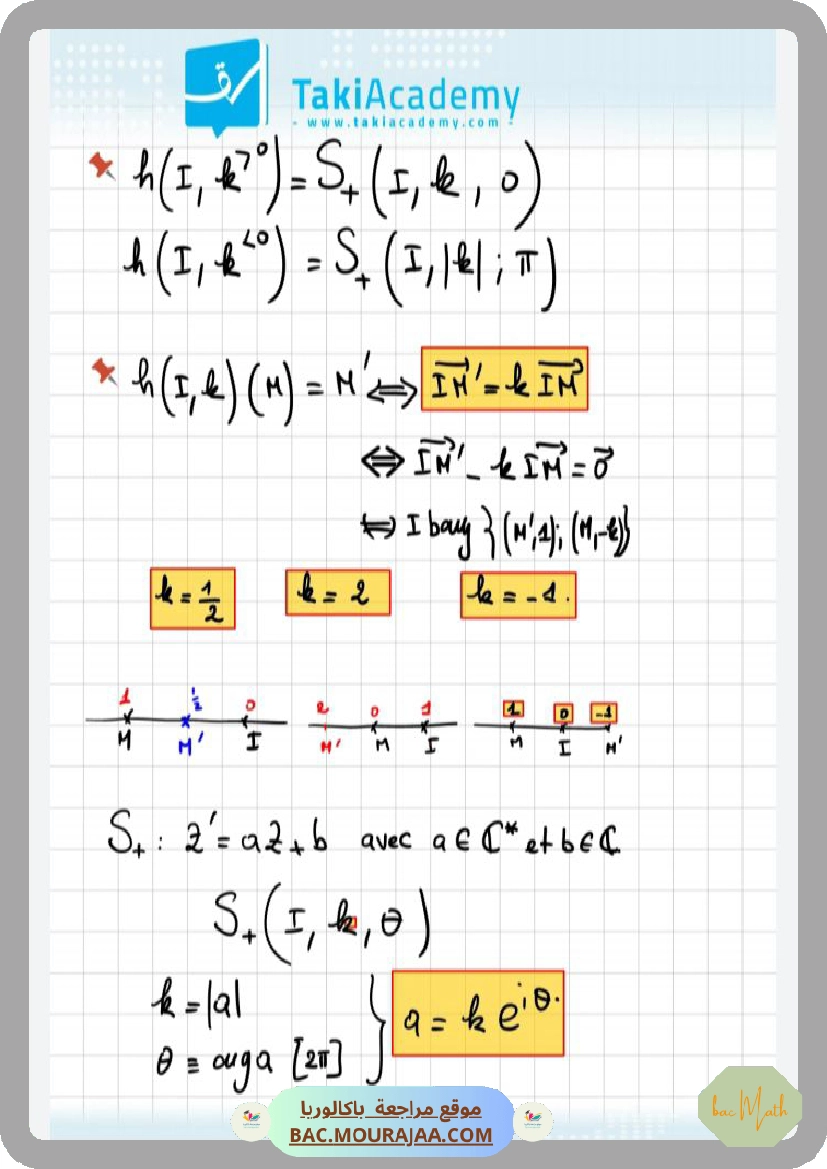 TakiAcademy
- www.takiacademy.com -
h(I, k^{>0}) = S₊(I, k, 0)
h(I, k^{<0}) = S₊(I, |k| ; π)
h(I, k)(M) = M' ⇔ \overrightarrow{IM'} = k \overrightarrow{IM}
⇔ \overrightarrow{IM'} - k \overrightarrow{IM} = \vec{0}
⇔ I bary {(M',1); (M,-k)}
k = 1/2 k = 2 k = -1.
1 1/2 0 2 0 1 1 0 -1
M M' I M' M I M I M'
S₊ : z' = az + b avec a ∈ ℂ* et b ∈ ℂ
S₊(I, k, θ)
k = |a|
θ ≡ arg a [2π]
a = k e^{iθ}.
موقع مراجعة باكالوريا
BAC.MOURAJAA.COM
bac Math